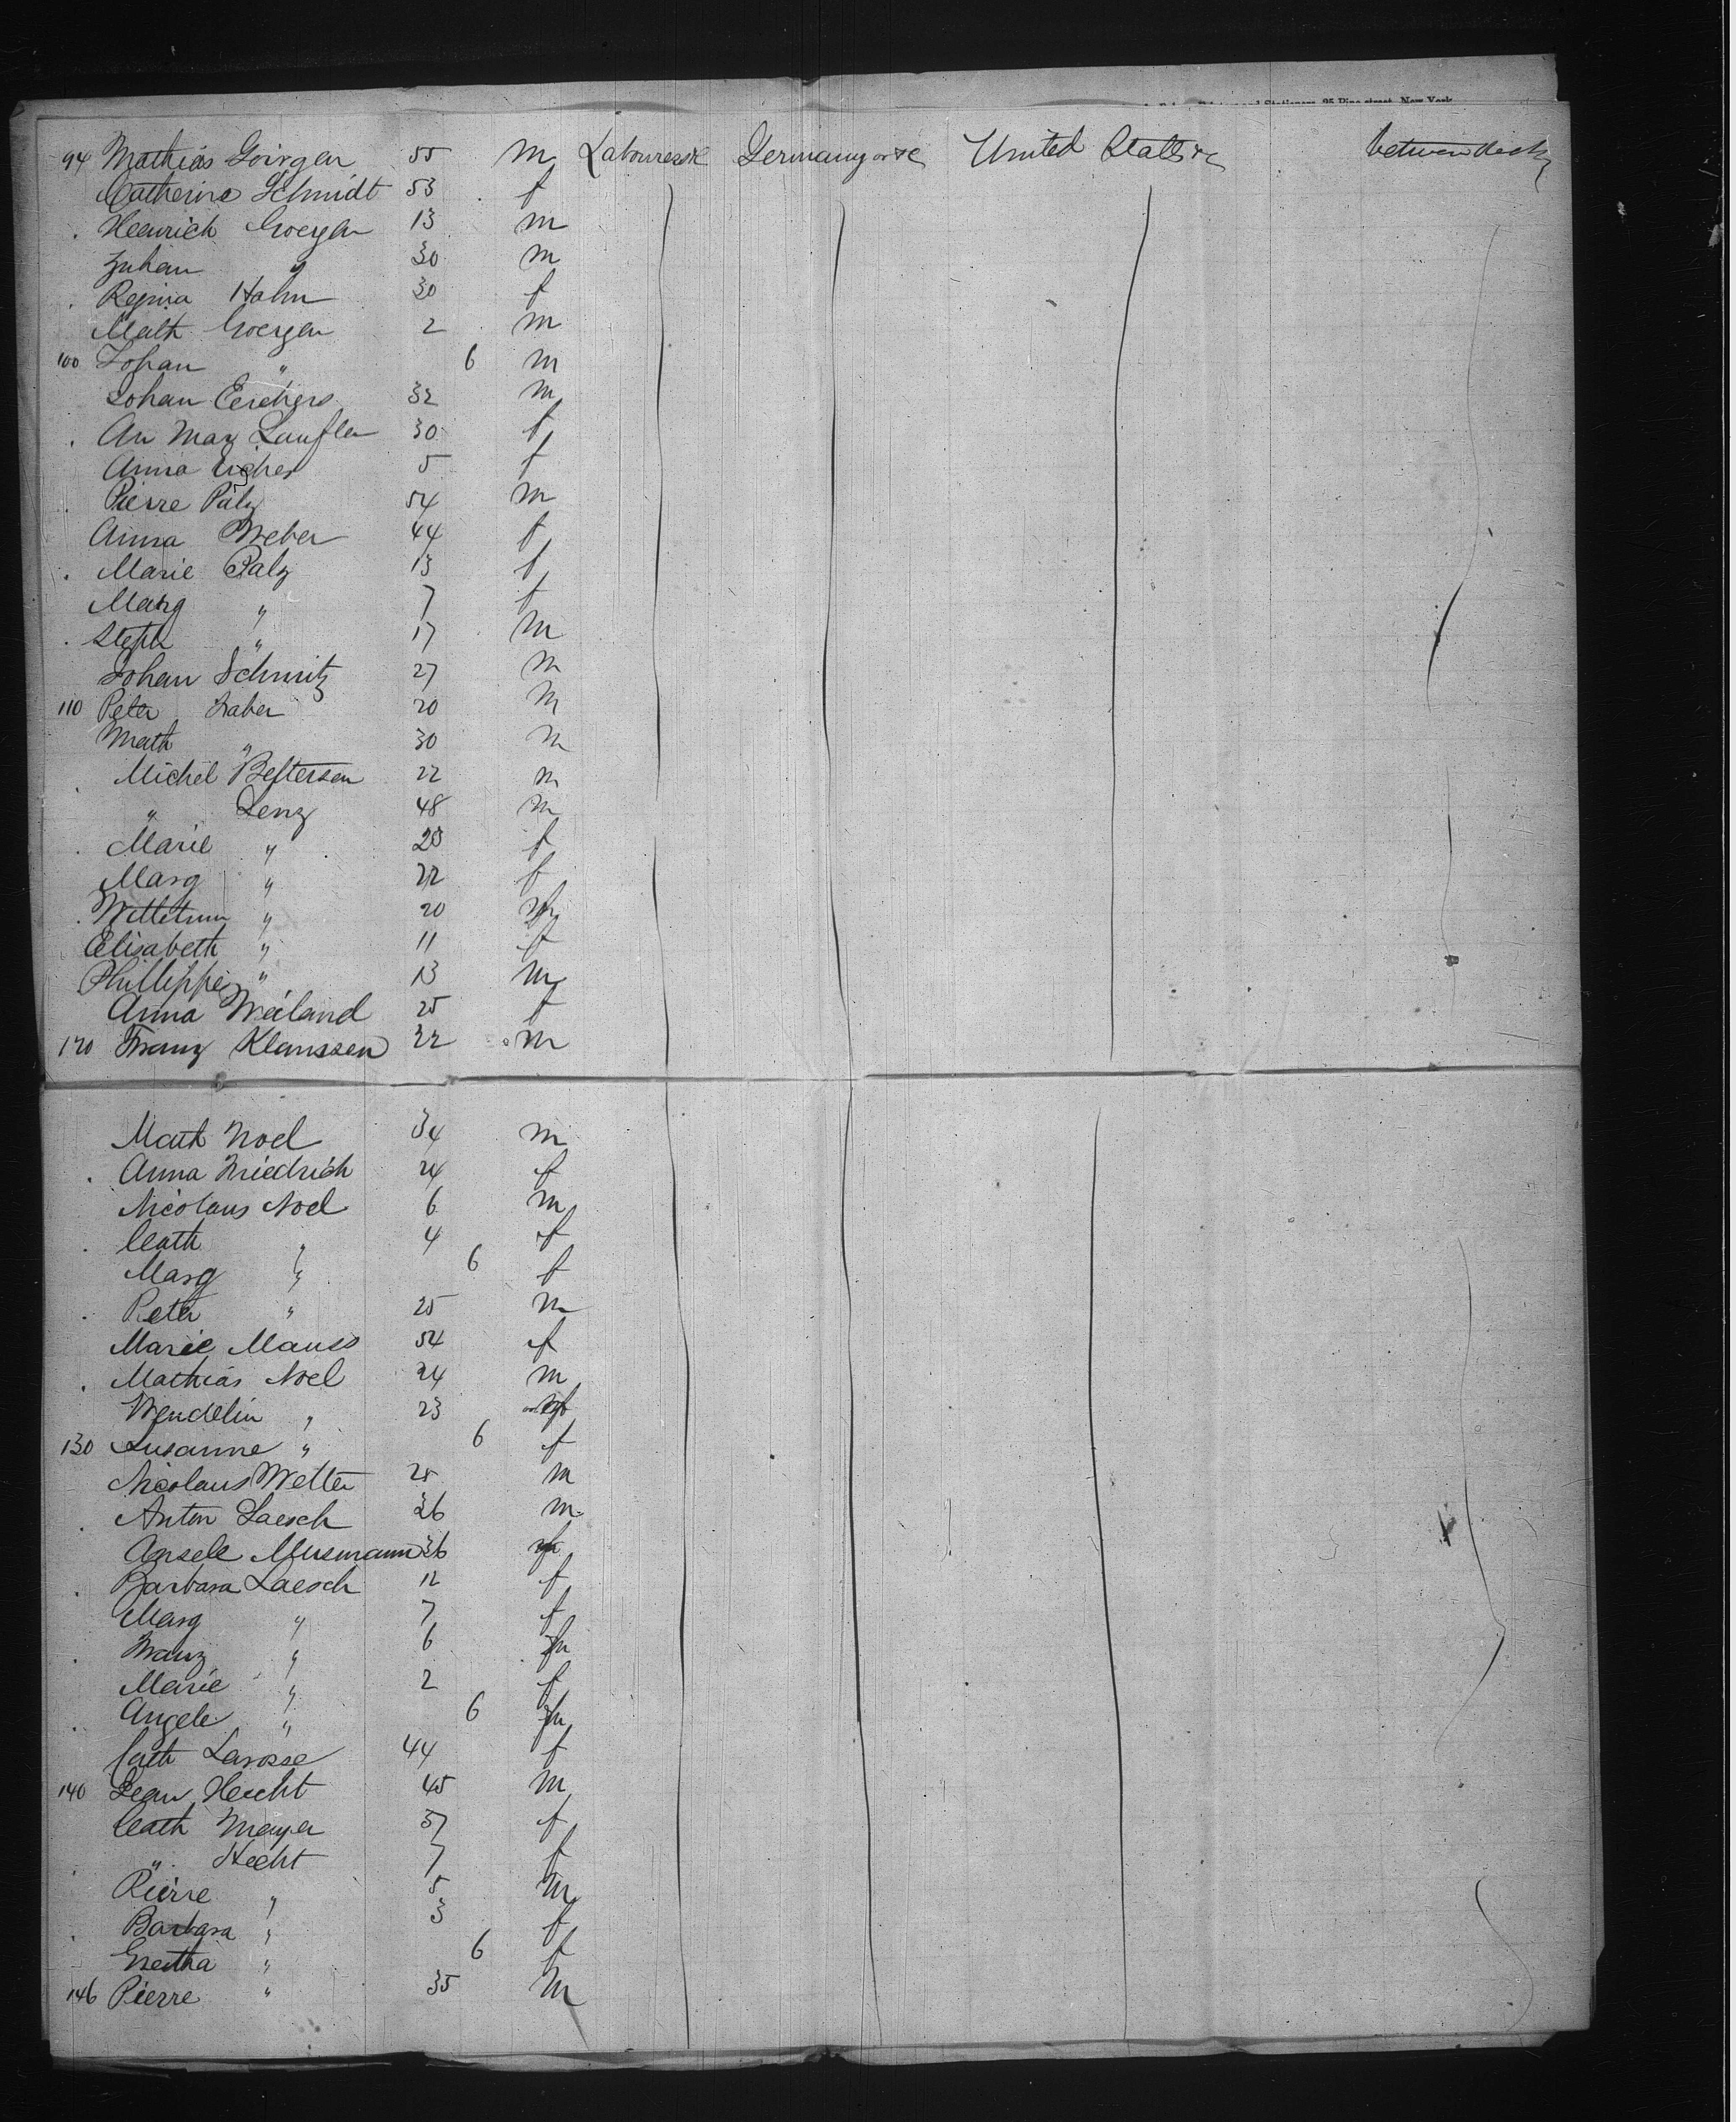 Printers and Stationers, 25 Pine street, New York
94 Mathias Goirgen 55 m Labourer &c Germany &c United States &c between decks
Catherine Schmidt 53 f
Heinrich Goergen 13 m
Johan " 30 m
Regina Hahn 30 f
Math Goergen 2 m
100 Johan " 6 m
Johan Eeichers 32 m
An Mary Laufler 30 f
Anna Eicher 5 f
Pierre Palz 54 m
Anna Weber 44 f
Marie Palz 13 f
Marg " 7 f
Steph " 17 m
Johan Schmitz 27 m
110 Peter Faber 20 m
Math " 30 m
Michel Beftersen 22 m
" Lenz 48 m
Marie " 23 f
Marg " 22 f
" 20
Elisabeth " 11 f
Phillippe " 13 m
Anna Weiland 25 f
120 Franz Klanssen 22 m
Math Noel 34 m
Anna Friedrich 24 f
Nicolaus Noel 6 m
Cath " 4 f
Marg " 6 f
Peter " 25 m
Marie Mauss 54 f
Mathias Noel 24 m
Wendelin " 23
130 Susanne " 6 f
Nicolaus Wetter 25 m
Anton Laesch 36 m
Musmann 36
Barbara Laesch 12 f
Marg " 7 f
Franz " 6 m
Marie " 2 f
Angele " 6
Cath Larosse 44 f
140 Jean Hecht 45 m
Cath Mayer 37 f
" Hecht 7 f
Pierre " 5 m
Barbara " 3 f
Gretha " 6 f
146 Pierre " 35 m